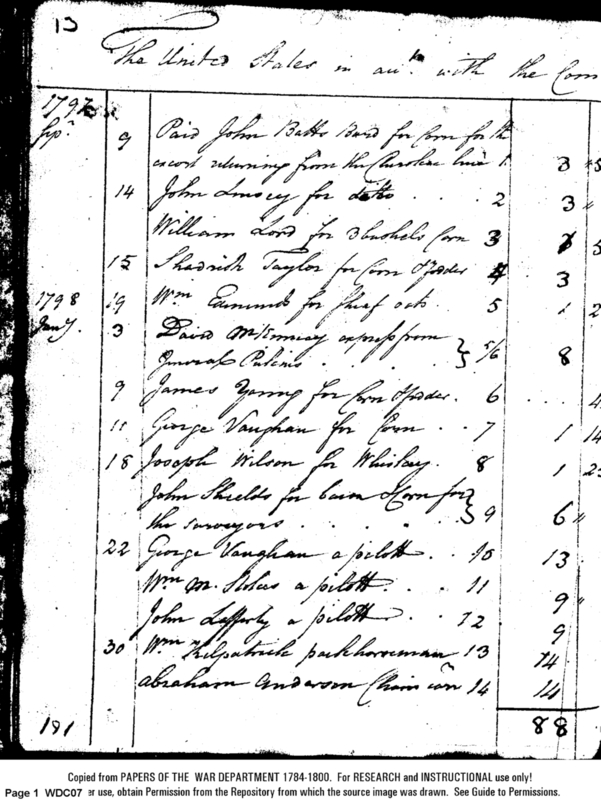 13
The United States in acct. with the Com
1797
Sept. 9 Paid John Batts Bard for Corn for the
escort returning from the Cherokee line 1 3
14 John Linsey for ditto . . . . 2 3 "
William Lord for 3 bushels Corn 3
15 Shadrick Taylor for Corn & fodder 4 3
19 Wm for sheaf oats . 5 1 2
1798
Jany. 3 David McKinney express from } 5/6 8
General Pickins . . . . .
9 James Young for Corn & fodder . 6 . . . 4
11 George Vaughan for Corn . . 7 1 14
18 Joseph Wilson for Whiskey . 8 1 2
John Shields for bacon & Corn for }
the surveyors . . . . . 9 6 "
22 George Vaughan a pilott . . 10 13
Wm M. Stokes a pilott . . . 11 9 "
John Lafferty a pilott . . 12 9
30 Wm Kilpatrick packhorseman 13 14
Abraham Anderson Chain 14 14
191 88
Copied from PAPERS OF THE WAR DEPARTMENT 1784-1800. For RESEARCH and INSTRUCTIONAL use only!
Page 1 WDC07 er use, obtain Permission from the Repository from which the source image was drawn. See Guide to Permissions.